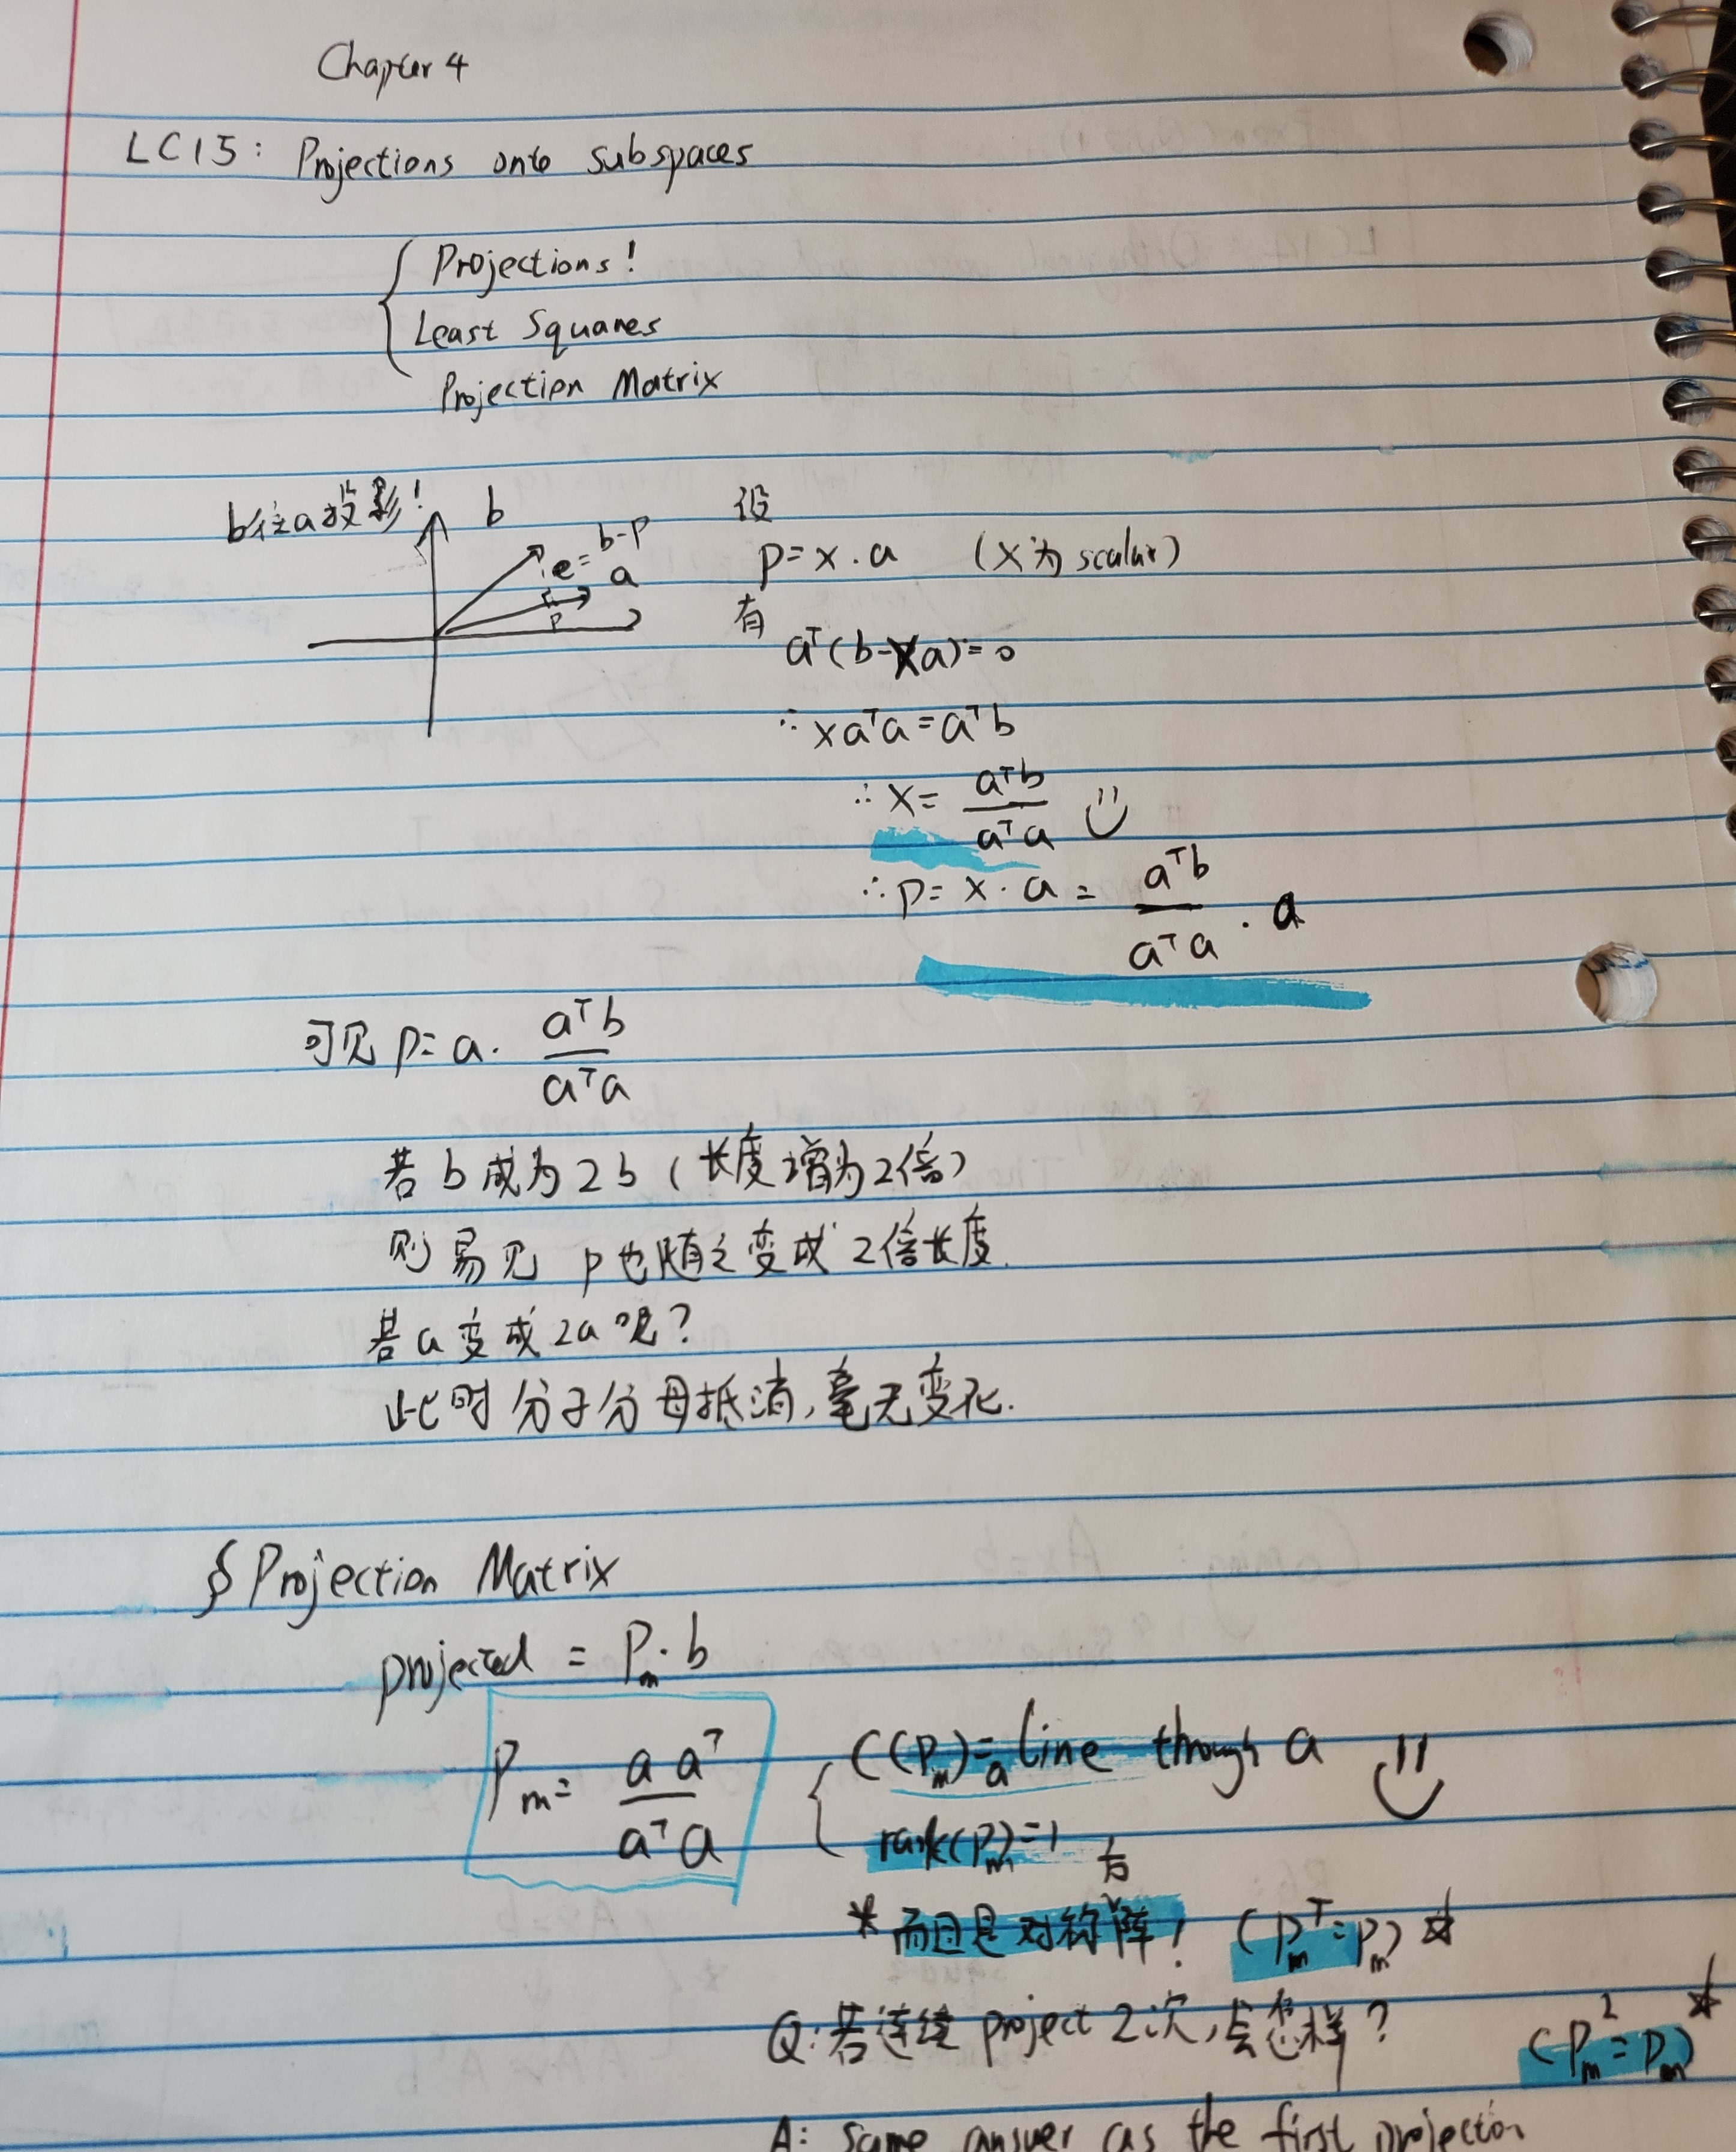 Chapter 4
LC15: Projections onto subspaces
Projections!
Least Squares
Projection Matrix
b往a投影!
b
e=b-p
a
p
设
p=x·a (x为scalar)
有
aᵀ(b-xa)=0
∴xaᵀa=aᵀb
∴x= aᵀb / aᵀa
∴p=x·a= aᵀb / aᵀa · a
可见 p=a· aᵀb / aᵀa
若b成为2b(长度增为2倍)
则易见 p也随之变成2倍长度.
若a变成2a呢?
此时分子分母抵消,毫无变化.
§ Projection Matrix
projected = Pₘ·b
Pₘ= a aᵀ / aᵀa
C(Pₘ)=a line through a
rank(Pₘ)=1
*而且是对称阵! (Pₘᵀ=Pₘ) ☆
Q:若连续project 2次,会怎样? (Pₘ²=Pₘ) ☆
A: Same answer as the first projection